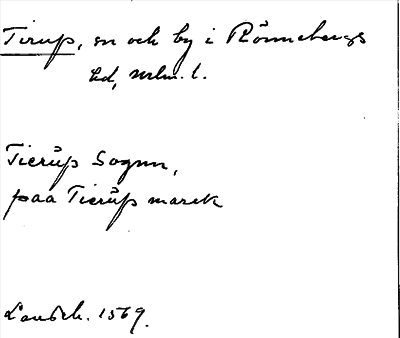 Tirup, sn och by i Rönnebergs
hd, mlm. l.
Tierŭp Sognn,
paa Tierŭp marck
Landsk. 1569.